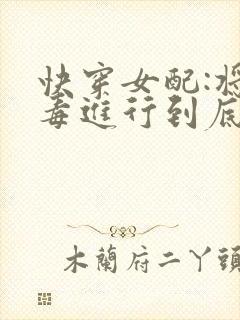 快穿女配:将
毒進行到底
木蘭府二丫頭